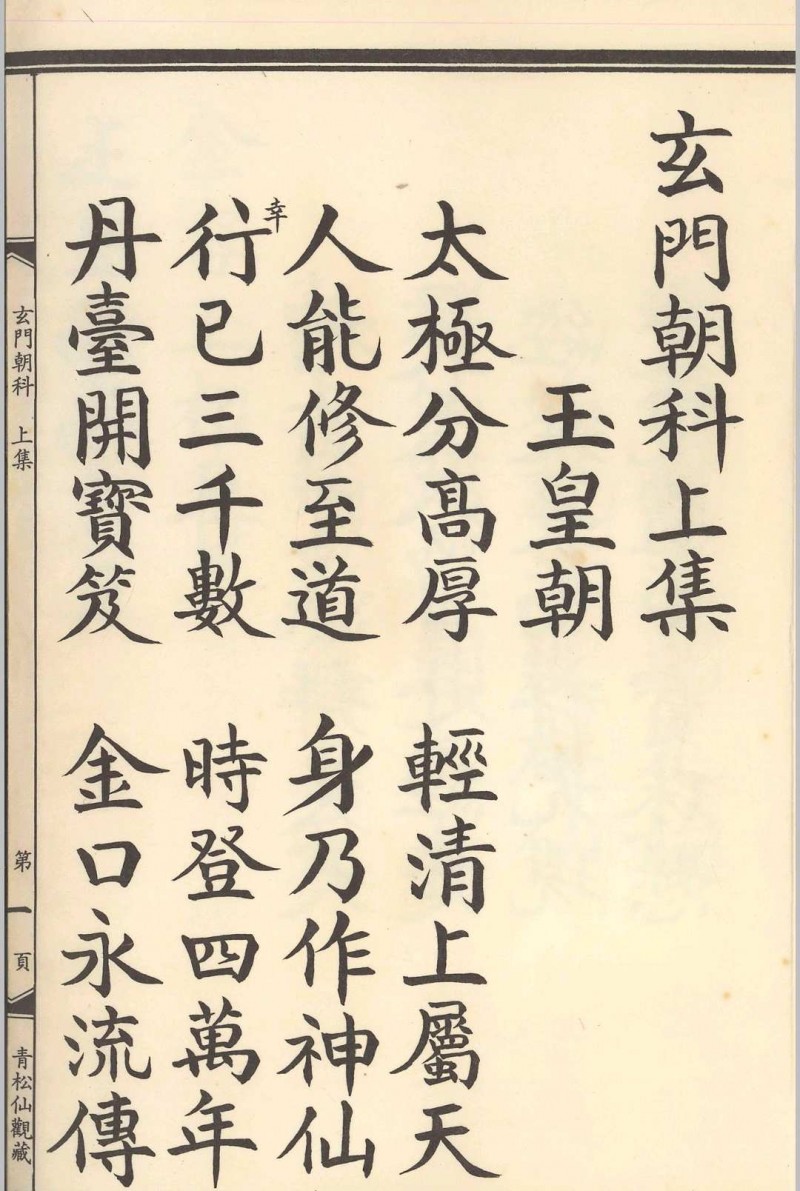 玄門朝科上集
玉皇朝
太極分高厚　輕清上屬天
人能修至道　身乃作神仙
行幸已三千數　時登四萬年
丹臺開寶笈　金口永流傳
玄門朝科　上集
第一頁
青松仙觀藏